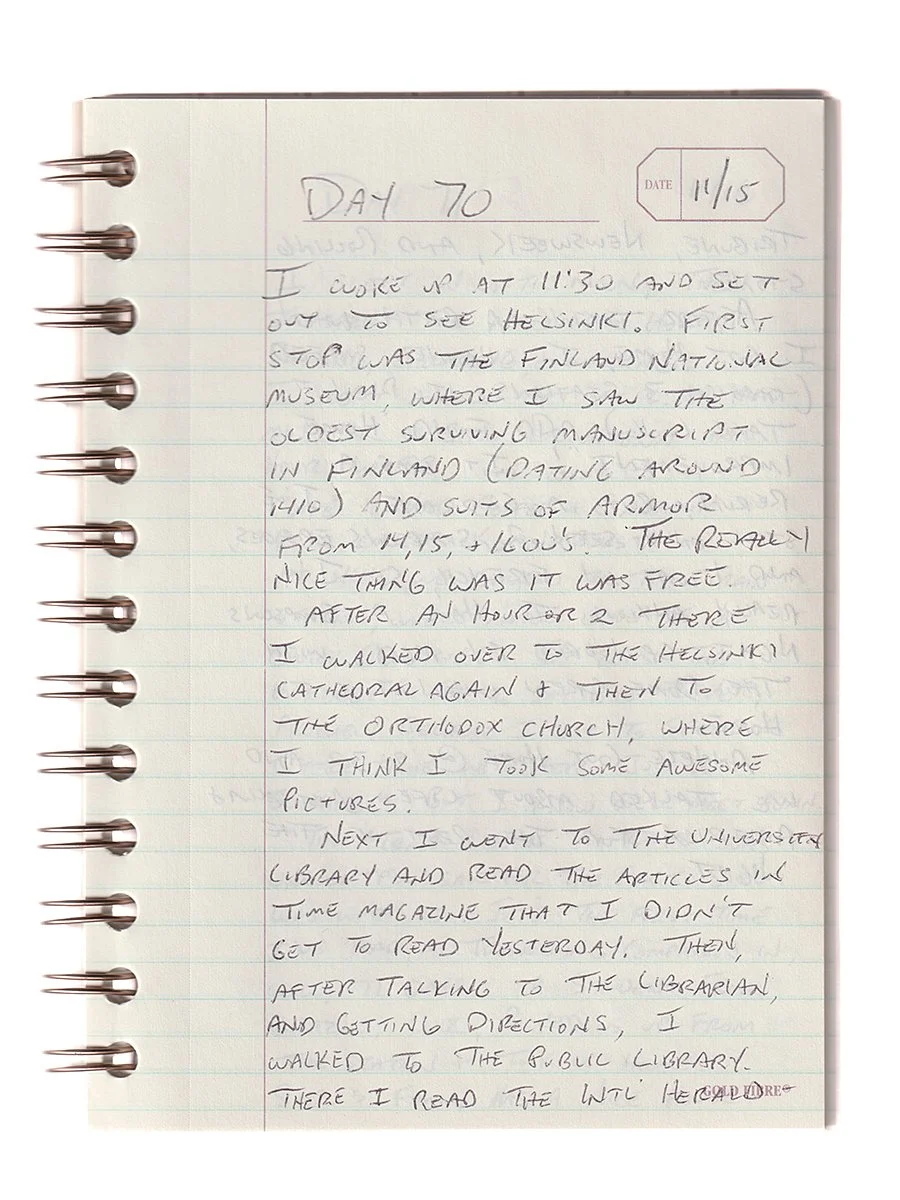 DAY 70
DATE 11/15
I WOKE UP AT 11:30 AND SET
OUT TO SEE HELSINKI. FIRST
STOP WAS THE FINLAND NATIONAL
MUSEUM, WHERE I SAW THE
OLDEST SURVIVING MANUSCRIPT
IN FINLAND (DATING AROUND
1410) AND SUITS OF ARMOR
FROM 14, 15, + 1600'S. THE REALLY
NICE THING WAS IT WAS FREE.
AFTER AN HOUR OR 2 THERE
I WALKED OVER TO THE HELSINKI
CATHEDRAL AGAIN & THEN TO
THE ORTHODOX CHURCH, WHERE
I THINK I TOOK SOME AWESOME
PICTURES.
NEXT I WENT TO THE UNIVERSITY
LIBRARY AND READ THE ARTICLES IN
TIME MAGAZINE THAT I DIDN'T
GET TO READ YESTERDAY. THEN,
AFTER TALKING TO THE LIBRARIAN,
AND GETTING DIRECTIONS, I
WALKED TO THE PUBLIC LIBRARY.
THERE I READ THE INTL HERALD
GOLD FIBRE